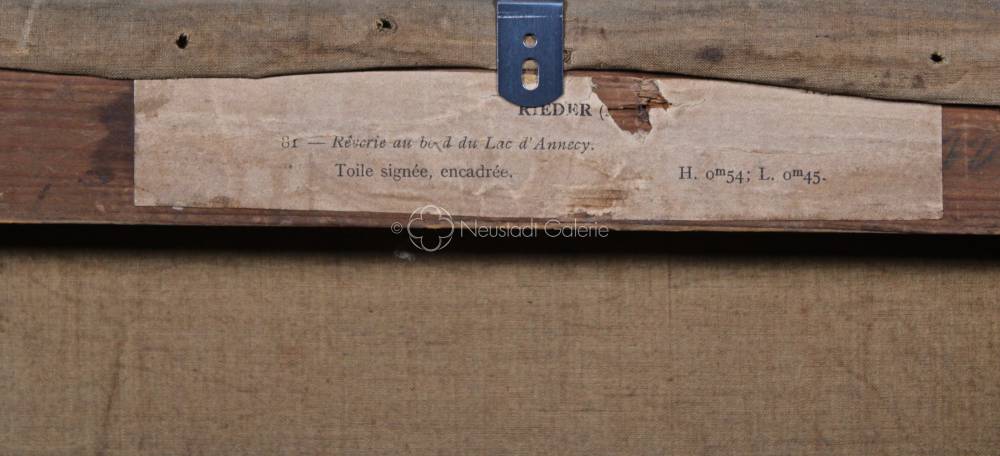 RIEDER (
81 — Rêverie au bord du Lac d'Annecy.
Toile signée, encadrée. H. 0ᵐ54; L. 0ᵐ45.
© Neustadt Galerie